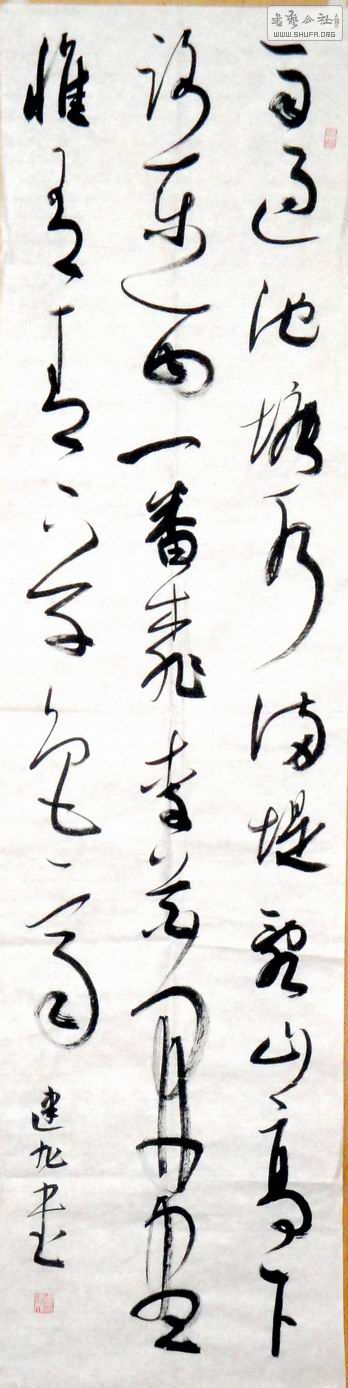 書藝公社
WWW.SHUFA.ORG
雨過池塘水滿堤亂山高下
路東西一番桃李花開盡
惟有青青草色齊
書